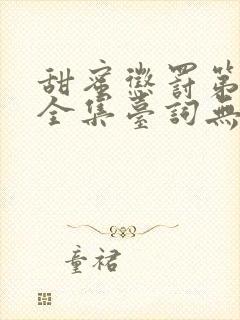 甜蜜懲罰第
全集臺詞無
童裙